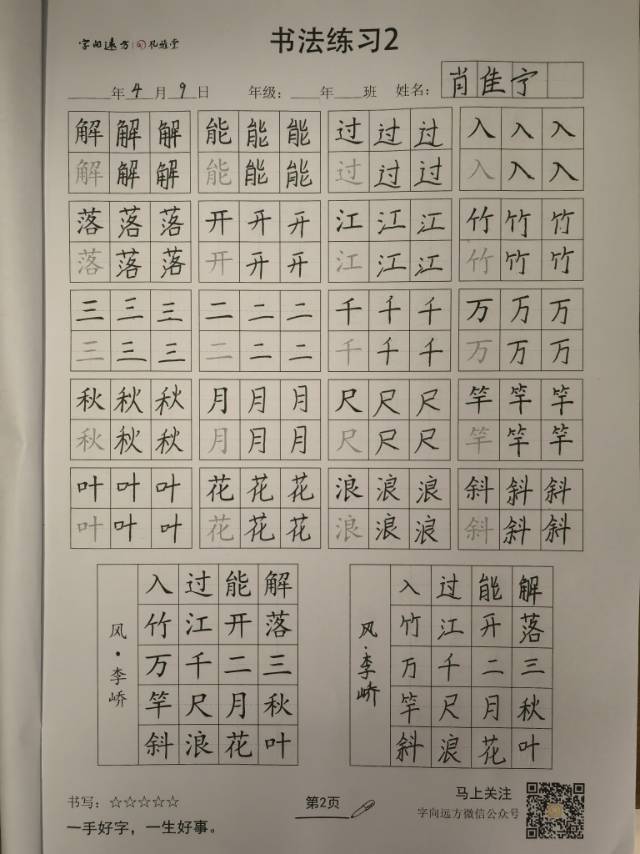 字向远方 书法练习2
____年4月9日 年级：____年____班 姓名：肖佳宁
解解解 能能能 过过过 入入入
解解解 能能能 过过过 入入入
落落落 开开开 江江江 竹竹竹
落落落 开开开 江江江 竹竹竹
三三三 二二二 千千千 万万万
三三三 二二二 千千千 万万万
秋秋秋 月月月 尺尺尺 竿竿竿
秋秋秋 月月月 尺尺尺 竿竿竿
叶叶叶 花花花 浪浪浪 斜斜斜
叶叶叶 花花花 浪浪浪 斜斜斜
风·李峤
入过能解
竹江开落
万千二三
竿尺月秋
斜浪花叶
风·李峤
入过能解
竹江开落
万千二三
竿尺月秋
斜浪花叶
书写：☆☆☆☆☆
一手好字，一生好事。
第2页
马上关注
字向远方微信公众号